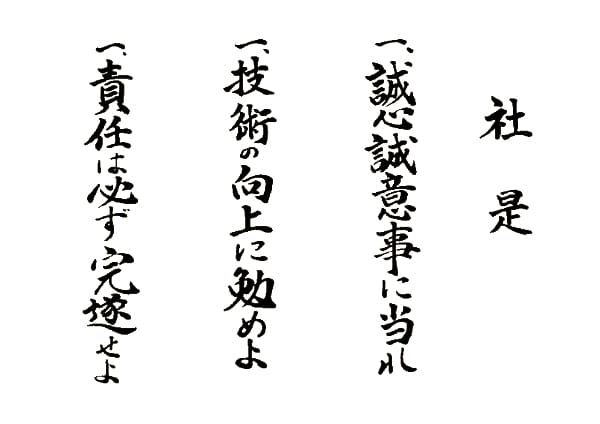 社是
一、誠心誠意事に当れ
一、技術の向上に勉めよ
一、責任は必ず完遂せよ